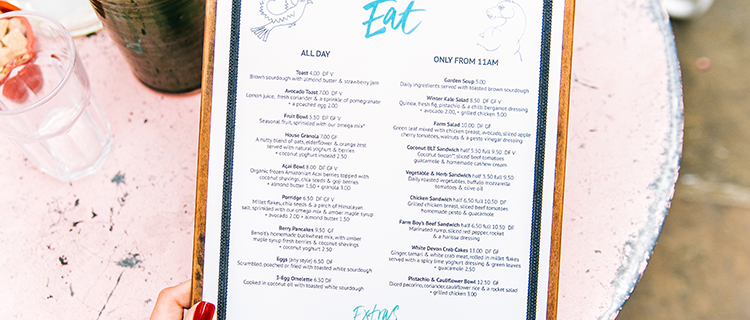 Eat
ALL DAY
Toast 4.00 DF V
Brown sourdough with almond butter & strawberry jam
Avocado Toast 7.00 DF V
Lemon juice, fresh coriander & a sprinkle of pomegranate
+ a poached egg 2.00
Fruit Bowl 5.50 DF GF V
Seasonal fruit, sprinkled with our omega mix*
House Granola 7.00 GF
A nutty blend of oats, elderflower & orange zest
served with natural yoghurt & berries
+ coconut yoghurt instead 2.50
Açai Bowl 8.00 DF GF V
Organic frozen Amazonian Acai berries topped with
coconut shavings, chia seeds & goji berries
+ almond butter 1.50 + granola 3.00
Porridge 6.50 DF GF V
Millet flakes, chia seeds & a pinch of Himalayan
salt, sprinkled with our omega mix & amber maple syrup
+ avocado 2.00 + almond butter 1.50
Berry Pancakes 9.50 GF
Benoit's homemade buckwheat mix, with amber
maple syrup fresh berries & coconut shavings
+ coconut yoghurt 2.50
Eggs (any style) 6.50 DF
Scrambled, poached or fried with toasted white sourdough
3-Egg Omelette 6.50 DF
Cooked in coconut oil with toasted white sourdough
ONLY FROM 11AM
Garden Soup 5.00
Daily ingredients served with toasted brown sourdough
Winter Kale Salad 8.50 DF GF V
Quinoa, fresh fig, pistachio & a chilli bergamot dressing
+ avocado 2.00, + grilled chicken 3.00
Farm Salad 10.00 DF GF
Green leaf mixed with chicken breast, avocado, sliced apple
cherry tomatoes, walnuts & a pesto vinegar dressing
Coconut BLT Sandwich half 5.50 full 9.50 DF V
Coconut bacon*, sliced beef tomatoes
guacamole & homemade cashew cream
Vegetable & Herb Sandwich half 5.50 full 9.50
Daily roasted vegetables, buffalo mozzarella
tomatoes & olive oil
Chicken Sandwich half 6.50 full 10.50 DF
Grilled chicken breast, sliced beef tomatoes
homemade pesto & guacamole
Farm Boy's Beef Sandwich half 6.50 full 10.50 DF
Marinated rump, sliced red pepper, rocket
& a harissa dressing
White Devon Crab Cakes 13.00 DF
Ginger, tamari & white crab meat, rolled in millet flakes
served with a spicy lime yoghurt dressing & green leaves
+ guacamole 2.50
Pistachio & Cauliflower Bowl 12.50 GF
Diced pecorino, coriander, cauliflower rice & a rocket salad
+ grilled chicken 3.00
Extras